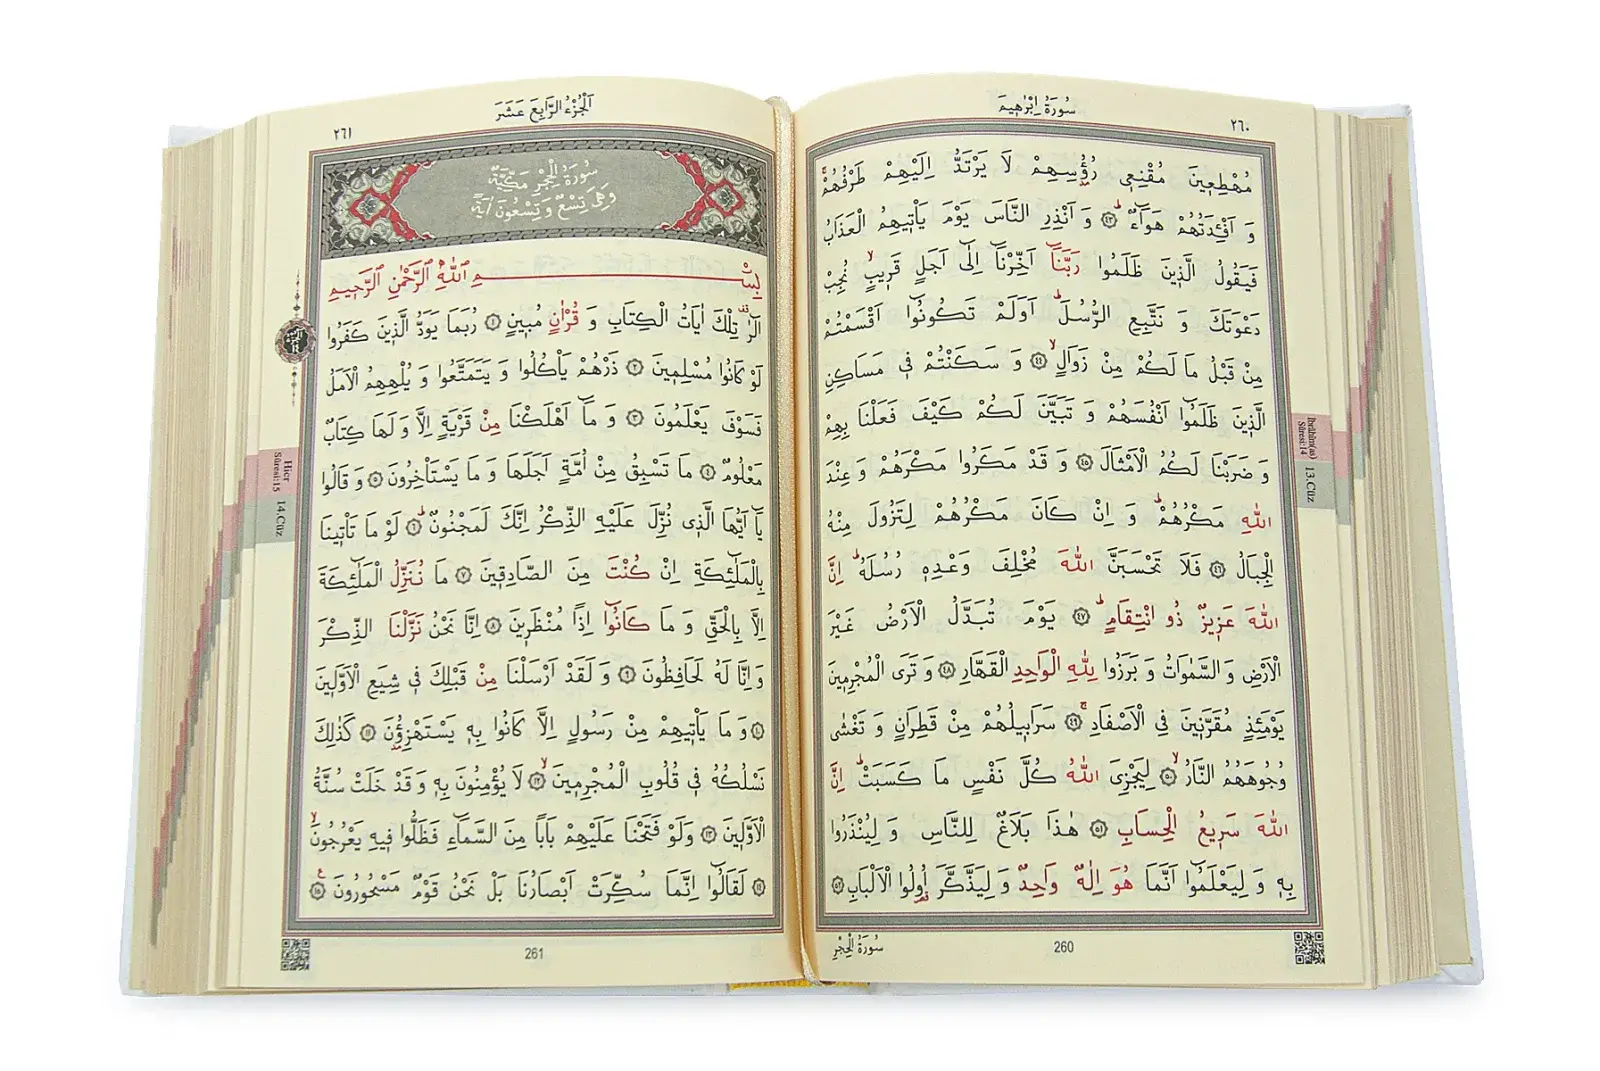 سُورَةُ اِبْرٰه۪يمَ
٢٦٠
مُهْطِع۪ينَ مُقْنِع۪ى رُؤُسِهِمْ لَا يَرْتَدُّ اِلَيْهِمْ طَرْفُهُمْۚ
وَ اَفْـِٔدَتُهُمْ هَوَٓاءٌۜ ﴿٤٣﴾ وَ اَنْذِرِ النَّاسَ يَوْمَ يَأْت۪يهِمُ الْعَذَابُ
فَيَقُولُ الَّذ۪ينَ ظَلَمُوا رَبَّنَٓا اَخِّرْنَٓا اِلٰٓى اَجَلٍ قَر۪يبٍۙ نُجِبْ
دَعْوَتَكَ وَ نَتَّبِعِ الرُّسُلَۜ اَوَلَمْ تَكُونُٓوا اَقْسَمْتُمْ
مِنْ قَبْلُ مَا لَكُمْ مِنْ زَوَالٍۙ ﴿٤٤﴾ وَ سَكَنْتُمْ ف۪ى مَسَاكِنِ
الَّذ۪ينَ ظَلَمُٓوا اَنْفُسَهُمْ وَ تَبَيَّنَ لَكُمْ كَيْفَ فَعَلْنَا بِهِمْ
وَ ضَرَبْنَا لَكُمُ الْاَمْثَالَ ﴿٤٥﴾ وَ قَدْ مَكَرُوا مَكْرَهُمْ وَ عِنْدَ
اللّٰهِ مَكْرُهُمْۜ وَ اِنْ كَانَ مَكْرُهُمْ لِتَزُولَ مِنْهُ
الْجِبَالُ ﴿٤٦﴾ فَلَا تَحْسَبَنَّ اللّٰهَ مُخْلِفَ وَعْدِه۪ رُسُلَهُۜ اِنَّ
اللّٰهَ عَز۪يزٌ ذُو انْتِقَامٍۜ ﴿٤٧﴾ يَوْمَ تُبَدَّلُ الْاَرْضُ غَيْرَ
الْاَرْضِ وَ السَّمٰوَاتُ وَ بَرَزُوا لِلّٰهِ الْوَاحِدِ الْقَهَّارِ ﴿٤٨﴾ وَ تَرَى الْمُجْرِم۪ينَ
يَوْمَئِذٍ مُقَرَّن۪ينَ فِى الْاَصْفَادِۚ ﴿٤٩﴾ سَرَاب۪يلُهُمْ مِنْ قَطِرَانٍ وَ تَغْشٰى
وُجُوهَهُمُ النَّارُۙ ﴿٥٠﴾ لِيَجْزِىَ اللّٰهُ كُلَّ نَفْسٍ مَا كَسَبَتْۜ اِنَّ
اللّٰهَ سَر۪يعُ الْحِسَابِ ﴿٥١﴾ هٰذَا بَلَاغٌ لِلنَّاسِ وَ لِيُنْذَرُوا
بِه۪ وَ لِيَعْلَمُٓوا اَنَّمَا هُوَ اِلٰهٌ وَاحِدٌ وَ لِيَذَّكَّرَ اُو۬لُوا الْاَلْبَابِ ﴿٥٢﴾
İbrâhîm(as) Sûresi:14
13.Cüz
سُورَةُ الْحِجْرِ
260
اَلْجُزْءُ الرَّابِعَ عَشَرَ
٢٦١
سُورَةُ الْحِجْرِ مَكِّيَّةٌ
وَهِىَ تِسْعٌ وَتِسْعُونَ اٰيَةً
بِسْمِ اللّٰهِ الرَّحْمٰنِ الرَّح۪يمِ
الٓرٰ تِلْكَ اٰيَاتُ الْكِتَابِ وَ قُرْاٰنٍ مُب۪ينٍ ﴿١﴾ رُبَمَا يَوَدُّ الَّذ۪ينَ كَفَرُوا
لَوْ كَانُوا مُسْلِم۪ينَ ﴿٢﴾ ذَرْهُمْ يَأْكُلُوا وَ يَتَمَتَّعُوا وَ يُلْهِهِمُ الْاَمَلُ
فَسَوْفَ يَعْلَمُونَ ﴿٣﴾ وَ مَٓا اَهْلَكْنَا مِنْ قَرْيَةٍ اِلَّا وَ لَهَا كِتَابٌ
مَعْلُومٌ ﴿٤﴾ مَا تَسْبِقُ مِنْ اُمَّةٍ اَجَلَهَا وَ مَا يَسْتَأْخِرُونَ ﴿٥﴾ وَ قَالُوا
يَٓا اَيُّهَا الَّذ۪ى نُزِّلَ عَلَيْهِ الذِّكْرُ اِنَّكَ لَمَجْنُونٌۜ ﴿٦﴾ لَوْ مَا تَأْت۪ينَا
بِالْمَلٰٓئِكَةِ اِنْ كُنْتَ مِنَ الصَّادِق۪ينَ ﴿٧﴾ مَا نُنَزِّلُ الْمَلٰٓئِكَةَ
اِلَّا بِالْحَقِّ وَ مَا كَانُٓوا اِذًا مُنْظَر۪ينَ ﴿٨﴾ اِنَّا نَحْنُ نَزَّلْنَا الذِّكْرَ
وَ اِنَّا لَهُ لَحَافِظُونَ ﴿٩﴾ وَ لَقَدْ اَرْسَلْنَا مِنْ قَبْلِكَ ف۪ى شِيَعِ الْاَوَّل۪ينَ
﴿١٠﴾ وَ مَا يَأْت۪يهِمْ مِنْ رَسُولٍ اِلَّا كَانُوا بِه۪ يَسْتَهْزِؤُنَ ﴿١١﴾ كَذٰلِكَ
نَسْلُكُهُ ف۪ى قُلُوبِ الْمُجْرِم۪ينَۙ ﴿١٢﴾ لَا يُؤْمِنُونَ بِه۪ وَ قَدْ خَلَتْ سُنَّةُ
الْاَوَّل۪ينَ ﴿١٣﴾ وَلَوْ فَتَحْنَا عَلَيْهِمْ بَابًا مِنَ السَّمَٓاءِ فَظَلُّوا ف۪يهِ يَعْرُجُونَۙ
﴿١٤﴾ لَقَالُٓوا اِنَّمَا سُكِّرَتْ اَبْصَارُنَا بَلْ نَحْنُ قَوْمٌ مَسْحُورُونَ ﴿١٥﴾
Hicr Sûresi:15
14.Cüz
261